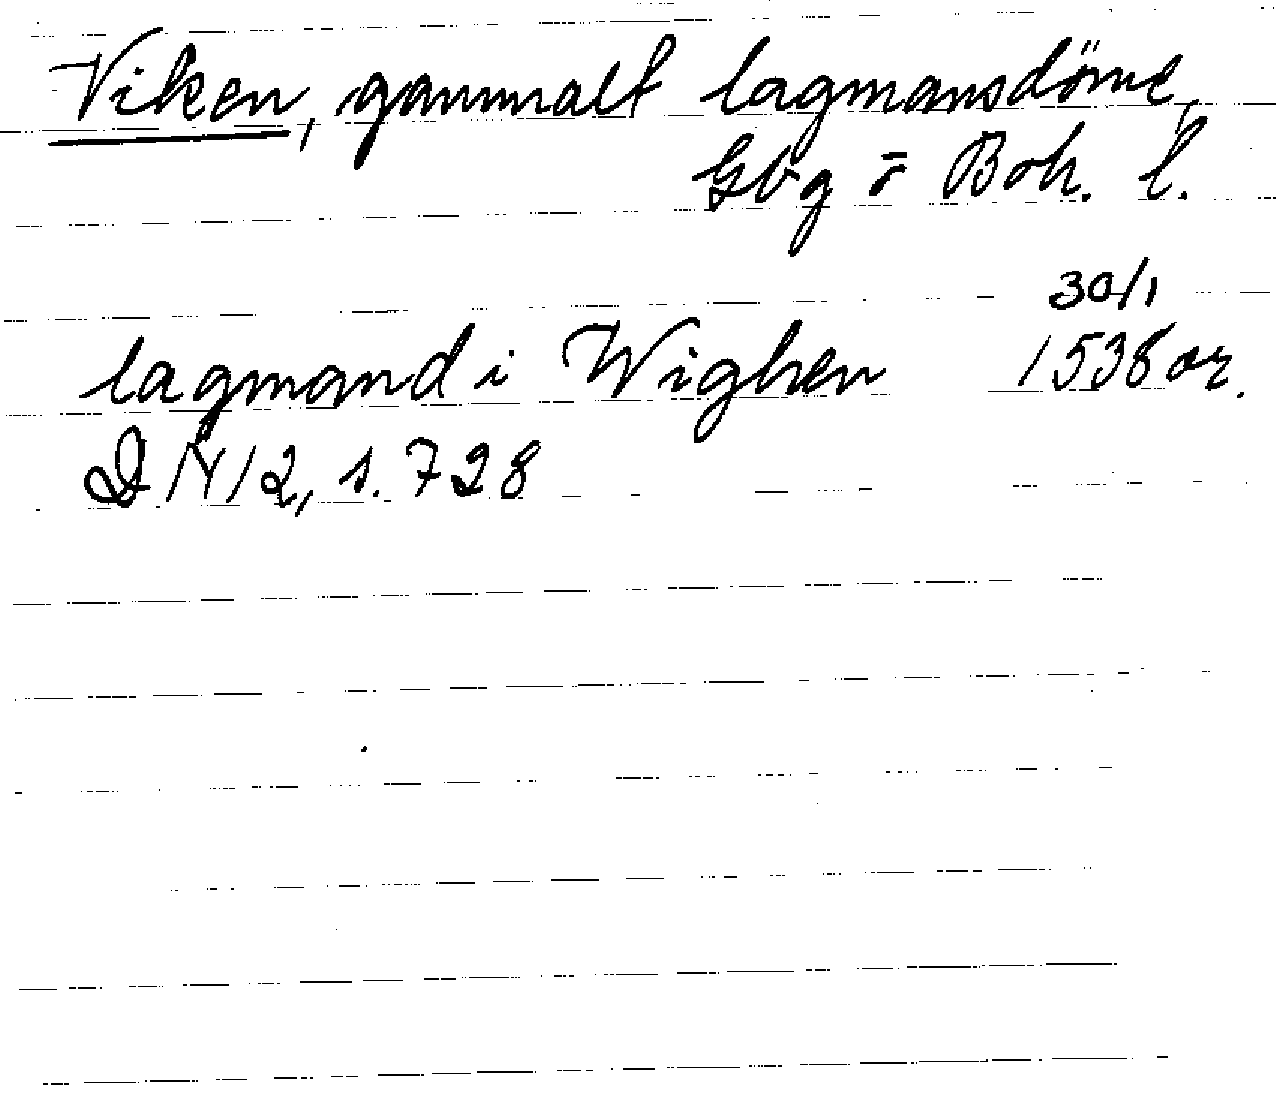 Viken, gammalt lagmansdöme,
Gbg o Boh. l.
30/1
lagmand i Wighen 1538 or.
DN 12, s. 728